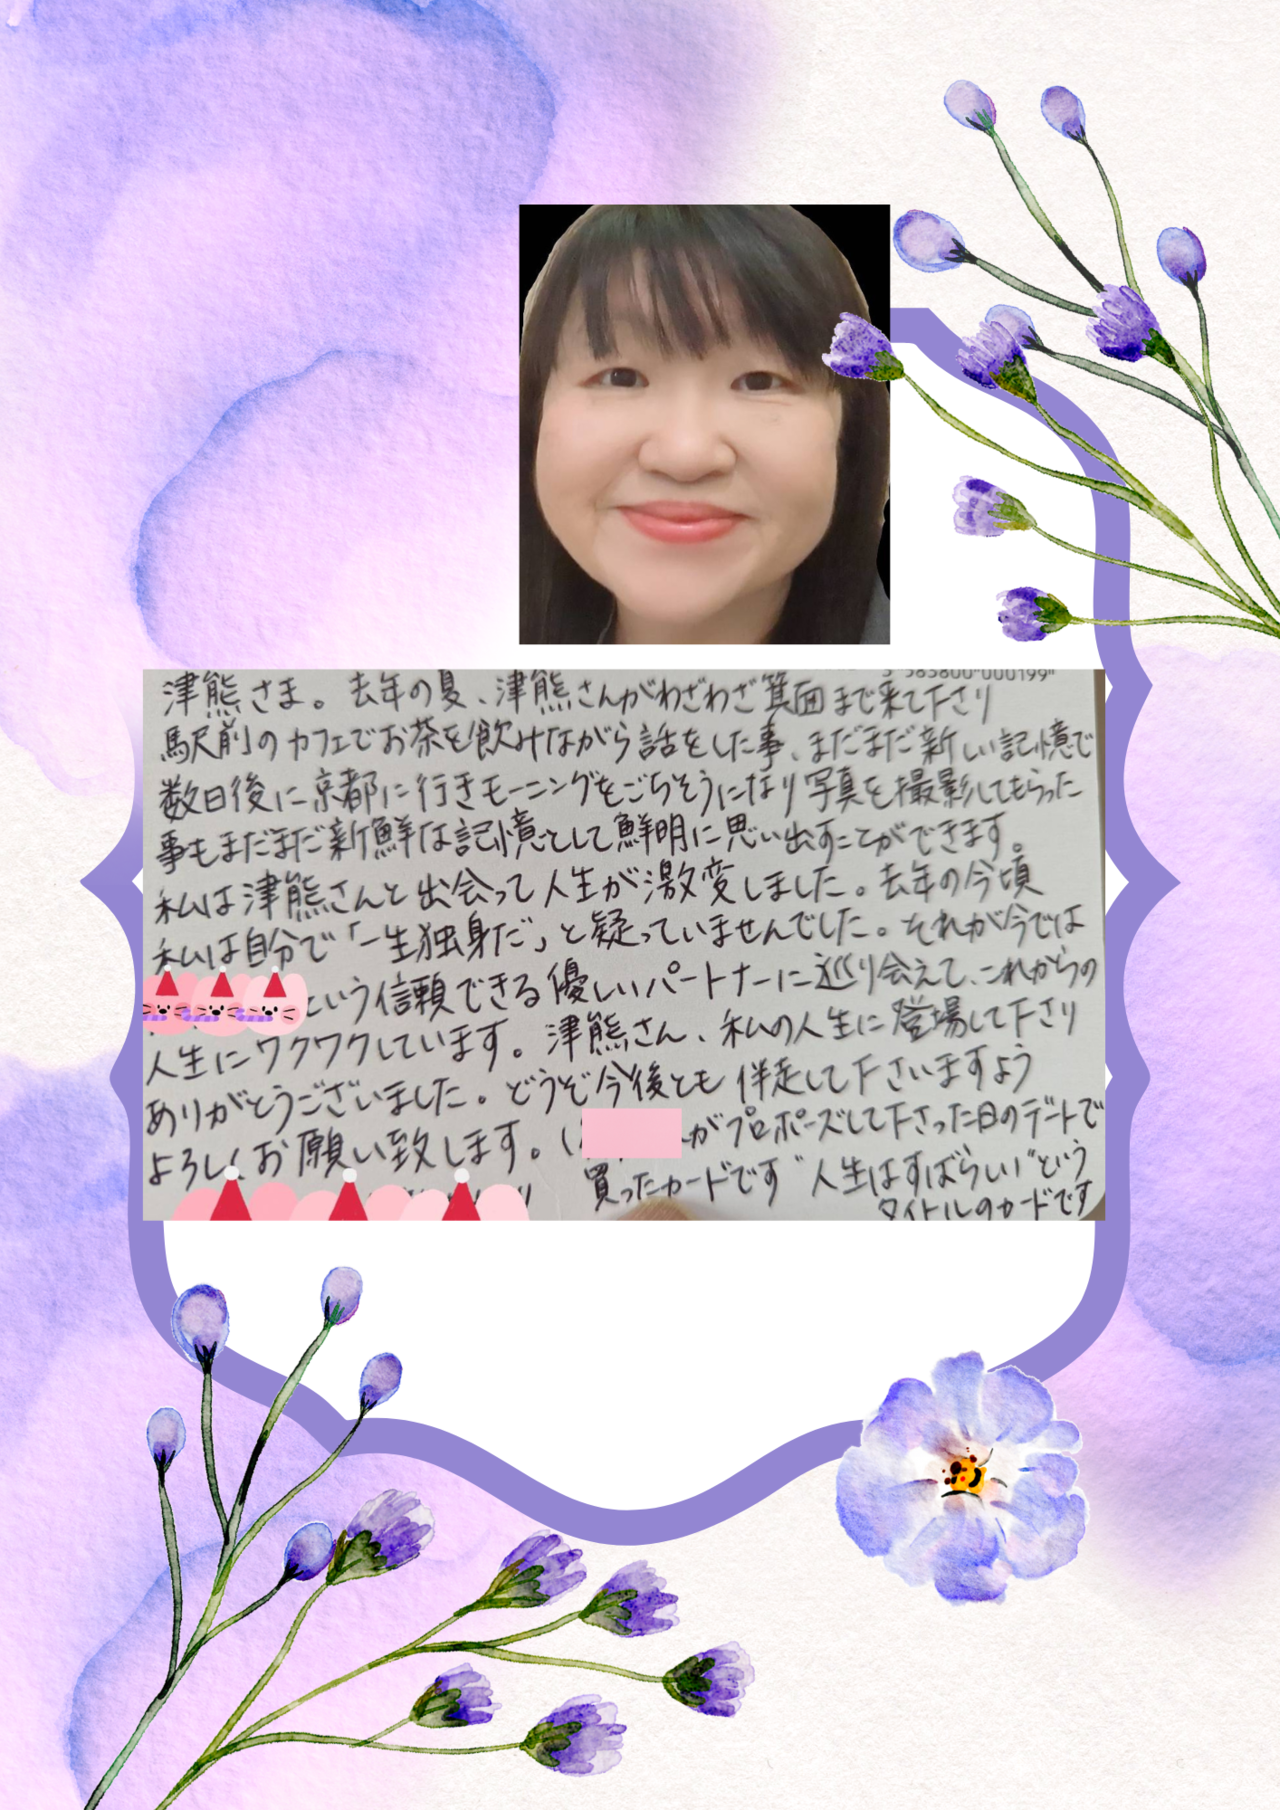 585800"000199"
津熊さま。去年の夏、津熊さんがわざわざ箕面まで来て下さり
駅前のカフェでお茶を飲みながら話をした事、まだまだ新しい記憶で
数日後に京都に行きモーニングをごちそうになり写真を撮影してもらった
事もまだまだ新鮮な記憶として鮮明に思い出すことができます。
私は津熊さんと出会って人生が激変しました。去年の今頃
私は自分で「一生独身だ」と疑っていませんでした。それが今では
という信頼できる優しいパートナーに巡り会えて、これからの
人生にワクワクしています。津熊さん、私の人生に登場して下さり
ありがとうございました。どうぞ今後とも伴走して下さいますよう
よろしくお願い致します。(
がプロポーズして下さった日のデートで
買ったカードです"人生はすばらしい"という
タイトルのカードです